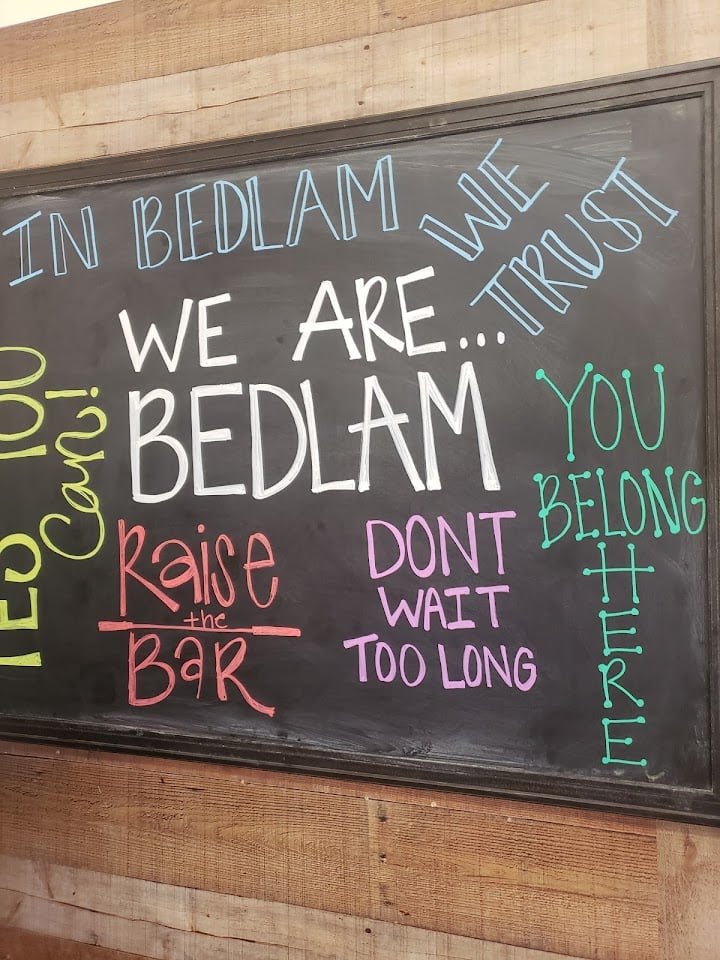 IN BEDLAM
WE
TRUST
WE ARE...
BEDLAM
YES YOU
Can!
Raise
the
BaR
DONT
WAIT
TOO LONG
YOU
BELONG
HERE